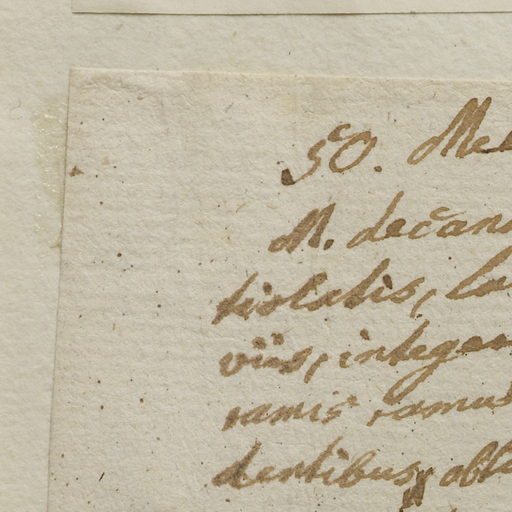 50. Mel
M. decan
tiolatis, la
viis, integer
ramis ramu
dentibus obt